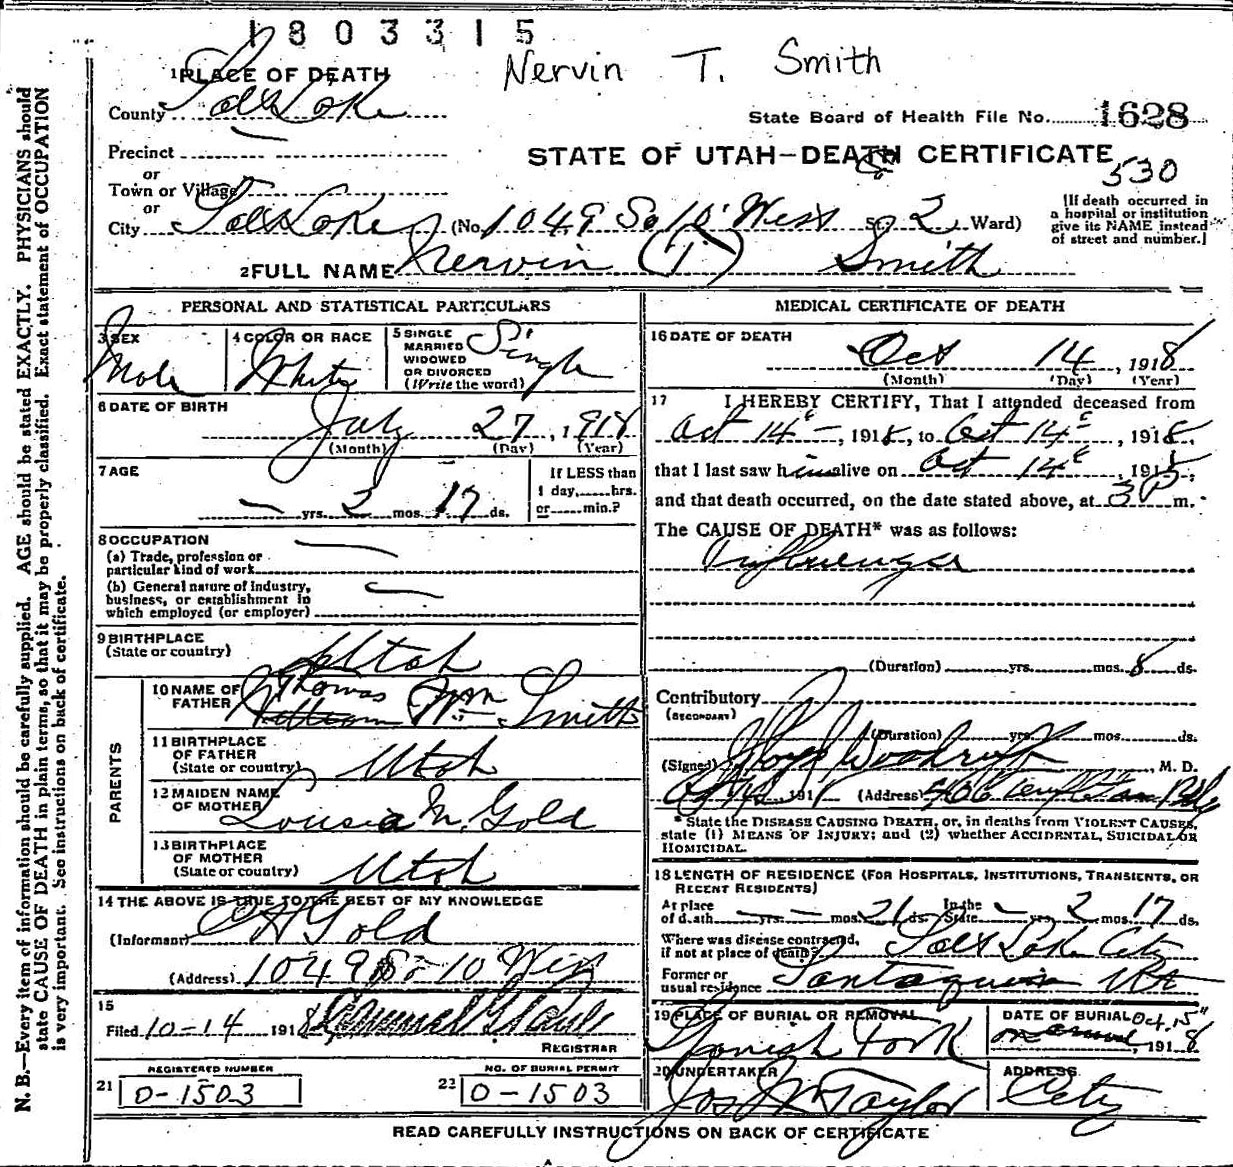 1803315
Nervin T. Smith
1 PLACE OF DEATH
County Salt Lake
State Board of Health File No. 1628
Precinct
STATE OF UTAH—DEATH CERTIFICATE
or
530
Town or Village
or
City Salt Lake (No. 1049 So 10' West St. 2 Ward)
[If death occurred in
a hospital or institution
give its NAME instead
of street and number.]
2 FULL NAME Nervin (T) Smith
PERSONAL AND STATISTICAL PARTICULARS
3 SEX
Male
4 COLOR OR RACE
White
5 SINGLE
MARRIED
WIDOWED
OR DIVORCED
(Write the word)
Single
6 DATE OF BIRTH
July 27, 1918
(Month) (Day) (Year)
7 AGE
— yrs. 2 mos. 17 ds.
If LESS than
1 day, hrs.
or min.?
8 OCCUPATION
(a) Trade, profession or
particular kind of work
(b) General nature of industry,
business, or establishment in
which employed (or employer)
9 BIRTHPLACE
(State or country)
Utah
PARENTS
10 NAME OF
FATHER
Thomas Wm
William Wm Smith
11 BIRTHPLACE
OF FATHER
(State or country)
Utah
12 MAIDEN NAME
OF MOTHER
Lousia M. Gold
13 BIRTHPLACE
OF MOTHER
(State or country)
Utah
14 THE ABOVE IS TRUE TO THE BEST OF MY KNOWLEDGE
(Informant) Gold
(Address) 1049 So 10 West
15
Filed 10-14 1918
REGISTRAR
REGISTERED NUMBER
21 0-1503
NO. OF BURIAL PERMIT
22 0-1503
MEDICAL CERTIFICATE OF DEATH
16 DATE OF DEATH
Oct 14, 1918
(Month) (Day) (Year)
17 I HEREBY CERTIFY, That I attended deceased from
Oct 14, 1918, to Oct 14, 1918,
that I last saw him alive on Oct 14, 1918,
and that death occurred, on the date stated above, at 3 P m.
The CAUSE OF DEATH* was as follows:
Influenza
(Duration) yrs. mos. 8 ds.
Contributory
(SECONDARY)
(Duration) yrs. mos. ds.
(Signed) Woodruff, M. D.
191 (Address) Templeton Bldg
* State the DISEASE CAUSING DEATH, or, in deaths from VIOLENT CAUSES,
state (1) MEANS OF INJURY; and (2) whether ACCIDENTAL, SUICIDAL OR
HOMICIDAL.
18 LENGTH OF RESIDENCE (FOR HOSPITALS, INSTITUTIONS, TRANSIENTS, OR
RECENT RESIDENTS)
At place
of death — yrs. — mos. 21 ds.
In the
State — yrs. 2 mos. 17 ds.
Where was disease contracted,
if not at place of death?
Salt Lake City
Former or
usual residence
Santaquin Ut
19 PLACE OF BURIAL OR REMOVAL
Spanish Fork
DATE OF BURIAL
Oct. 15" 1918
20 UNDERTAKER
Jos Wm Taylor
ADDRESS
City
READ CAREFULLY INSTRUCTIONS ON BACK OF CERTIFICATE
N. B.—Every item of information should be carefully supplied. AGE should be stated EXACTLY. PHYSICIANS should
state CAUSE OF DEATH in plain terms, so that it may be properly classified. Exact statement of OCCUPATION
is very important. See instructions on back of certificate.